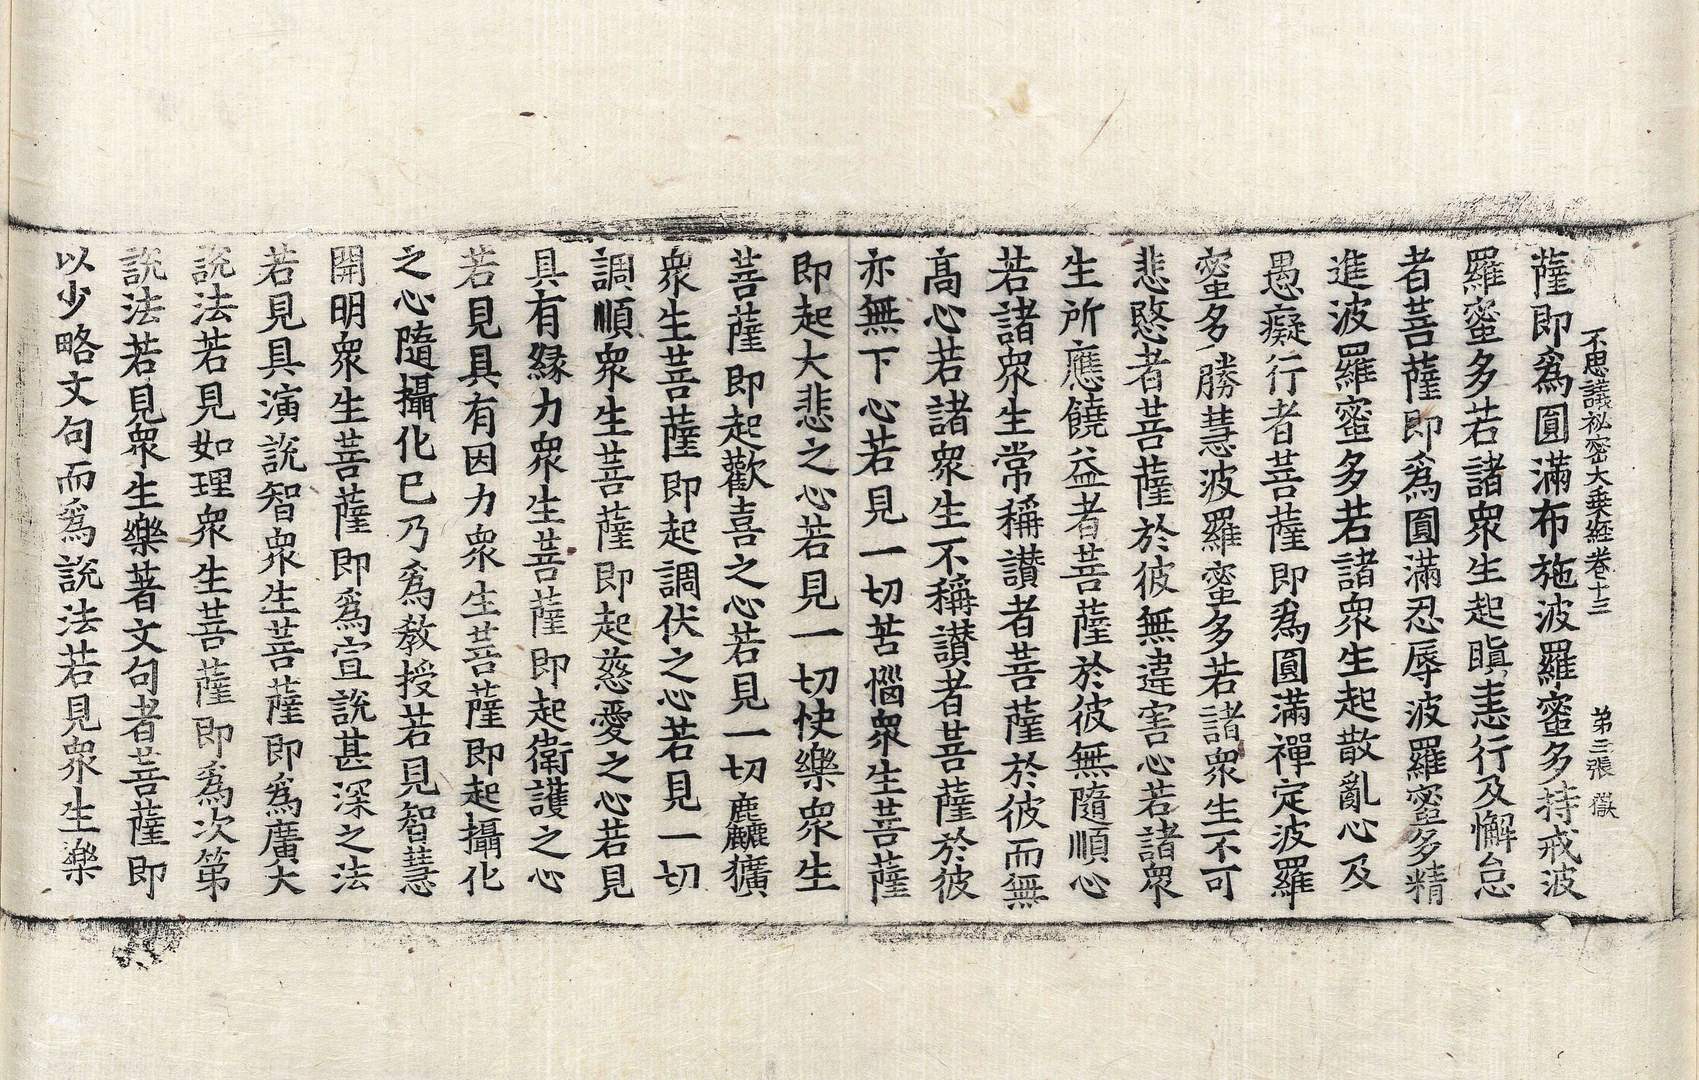 不思議祕密大乗経卷十三 第三張 獄
薩即爲圓滿布施波羅蜜多持戒波
羅蜜多若諸衆生起瞋恚行及懈怠
者菩薩即爲圓滿忍辱波羅蜜多精
進波羅蜜多若諸衆生起散亂心及
愚癡行者菩薩即爲圓滿禪定波羅
蜜多勝慧波羅蜜多若諸衆生不可
悲愍者菩薩於彼無違害心若諸衆
生所應饒益者菩薩於彼無隨順心
若諸衆生常稱讃者菩薩於彼而無
高心若諸衆生不稱讃者菩薩於彼
亦無下心若見一切苦惱衆生菩薩
即起大悲之心若見一切快樂衆生
菩薩即起歡喜之心若見一切麤獷
衆生菩薩即起調伏之心若見一切
調順衆生菩薩即起慈愛之心若見
具有緣力衆生菩薩即起衛護之心
若見具有因力衆生菩薩即起攝化
之心隨攝化已乃爲教授若見智慧
開明衆生菩薩即爲宣説甚深之法
若見具演説智衆生菩薩即爲廣大
説法若見如理衆生菩薩即爲次第
説法若見衆生樂著文句者菩薩即
以少略文句而爲説法若見衆生樂